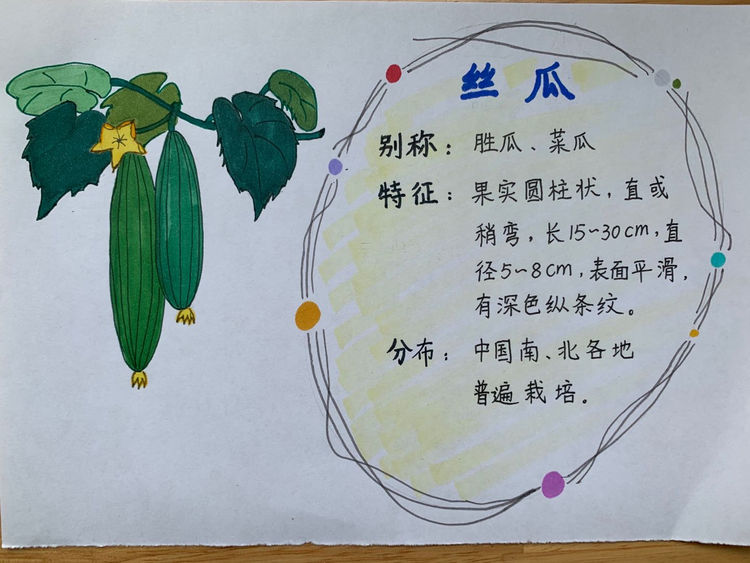 丝瓜
别称：胜瓜、菜瓜
特征：果实圆柱状，直或
稍弯，长15~30cm，直
径5~8cm，表面平滑，
有深色纵条纹。
分布：中国南、北各地
普遍栽培。